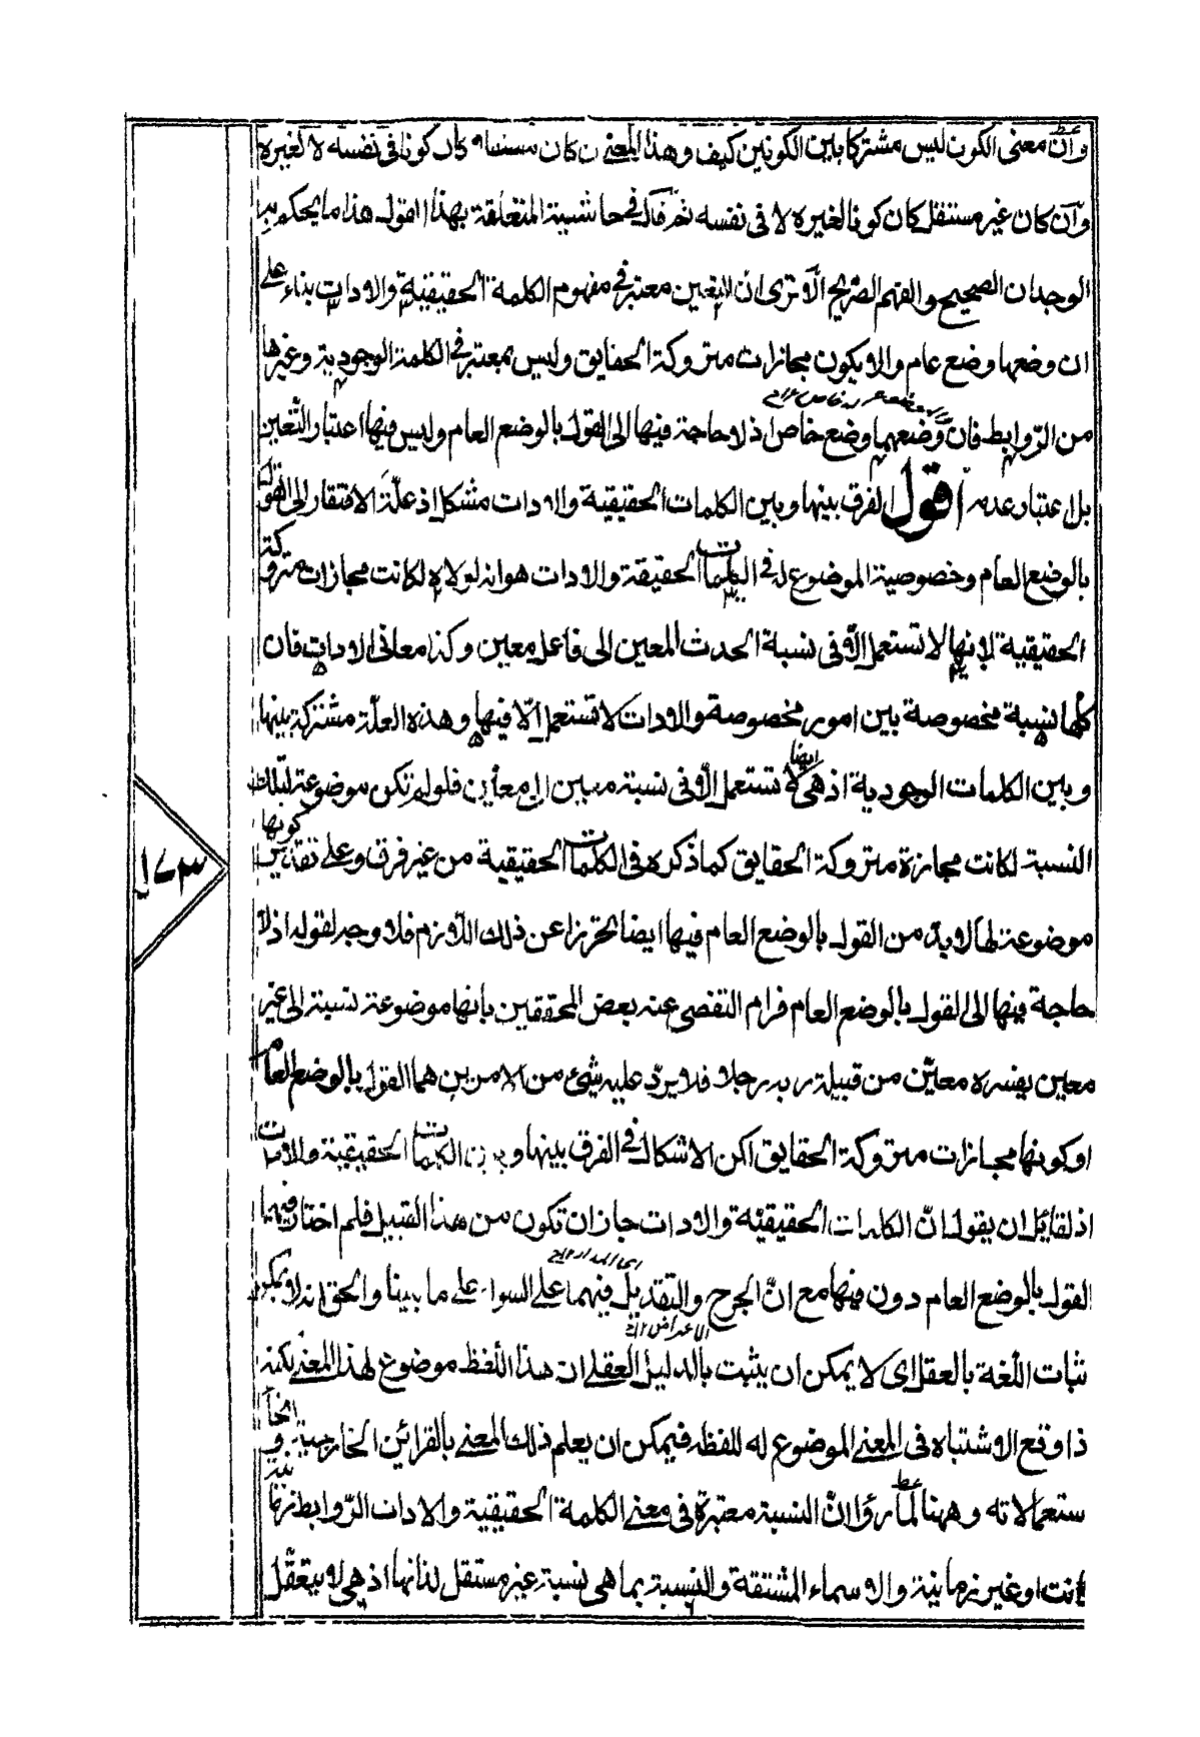 وان معنى الكون ليس مشتركا بين الكونين كيف وهذا المعنى ان كان مستقلا كان كونا فى نفسه لا لغيره
وان كان غير مستقل كان كونا لغيره لا فى نفسه ثم قال فى حاشية المتعلقة بهذا القول هذا ما يحكم به
الوجدان الصحيح والفهم الصريح الا ترى ان التعين معتبر فى مفهوم الكلمة الحقيقية والادات بناء على
ان وضعها وضع عام والا يكون مجازات متروكة الحقايق وليس بمعتبر فى الكلمة الوجودية وغيرها
من الروابط فان وضعهما وضع خاص اذ لا حاجة فيها الى القول بالوضع العام وليس فيها اعتبار التعين
بل اعتبار عدمه اقول الفرق بينها وبين الكلمات الحقيقية والادات مشكل اذ علة الافتقار الى القول
بالوضع العام وخصوصية الموضوع له فى الكلمات الحقيقة والادات هو انه لولاه لكانت مجازات متروكة
الحقيقية لانها لا تستعمل الا فى نسبة الحدث المعين الى فاعل معين وكذا معانى الادات فان
كلها نسبة مخصوصة بين امور مخصوصة والادات لا تستعمل الا فيها وهذه العلة مشتركة بينها
وبين الكلمات الوجودية اذ هى ايضا لا تستعمل الا فى نسبة معين الى معين فلو لم تكن موضوعة لتلك
النسبة لكانت مجازة متروكة الحقايق كما ذكره فى الكلمات الحقيقية من غير فرق وعلى تقدير كونها
موضوعة لها لا بد من القول بالوضع العام فيها ايضا تحرزا عن ذلك اللازم فلا وجه لقوله اذ لا
حاجة فيها الى القول بالوضع العام فرام التفصى عنه بعض المحققين بانها موضوعة نسبة الى غير
معين يفسره معين من قبيلة ربه رجلا فلا يرد عليه شئ من الامرين هما القول بالوضع العام
او كونها مجازات متروكة الحقايق لكن الاشكال فى الفرق بينها وبين الكلمات الحقيقية والادات
اذ لقايل ان يقول ان الكلمات الحقيقية والادات جاز ان تكون من هذا القبيل فلم اختار فيهما
القول بالوضع العام دون فيها مع ان الجرح والتعديل فيهما على السواء على ما بينا والحق انه لا يمكن
ثبات اللغة بالعقل اى لا يمكن ان يثبت بالدليل العقلى ان هذا اللفظ موضوع لهذا المعنى لكنه
ذا وقع الاشتباه فى المعنى الموضوع له للفظ فيمكن ان يعلم ذلك المعنى بالقرائن الخارجية و
ستعمالاته وههنا لما رؤا ان النسبة معتبرة فى معنى الكلمة الحقيقية والادات الروابط زمانية
انت او غير زمانية والاسماء المشتقة والنسبة بما هى نسبة غير مستقل لذاتها اذ هى لا يتعقل
١٧٣